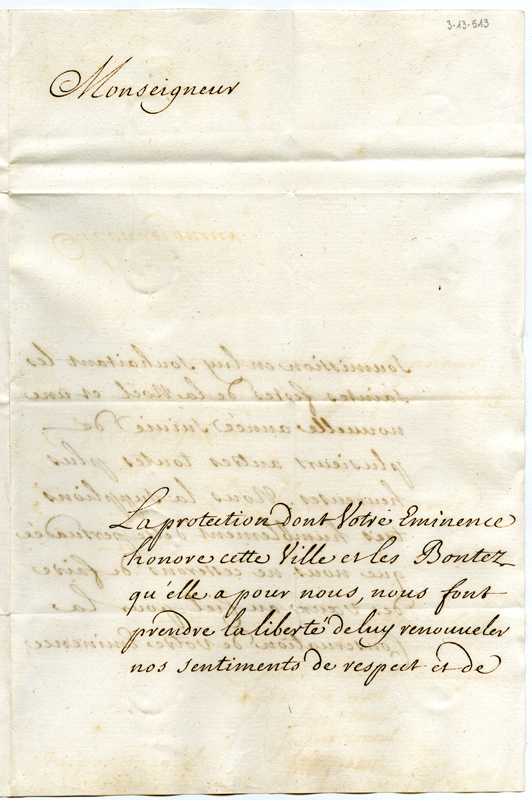 3-13-513
Monseigneur
La protection dont Votre Eminence
honore cette Ville et les Bontez
qu'elle a pour nous, nous font
prendre la liberté de luy renouveler
nos sentiments de respect et de